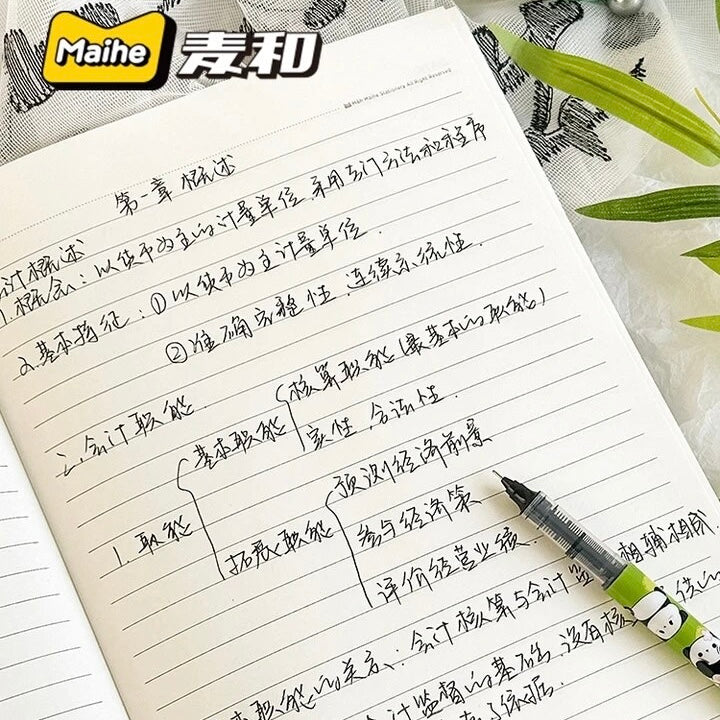 Maihe 麦和
Main Maihe Stationery All Right Reserved
第一章 概述
会计概述
1.概念:以货币为主的计量单位,采用专门方法和程序
2.基本特征:①以货币为主计量单位.
②准确完整性、连续系统性.
二.会计职能.
核算职能(最基本的职能)
基本职能
实性、合法性.
预测经济前景
1.职能
拓展职能
参与经济策
评价经营业绩.
职能的关系:会计核算与会计监 相辅相成
计监督的基础,没有核
依据.